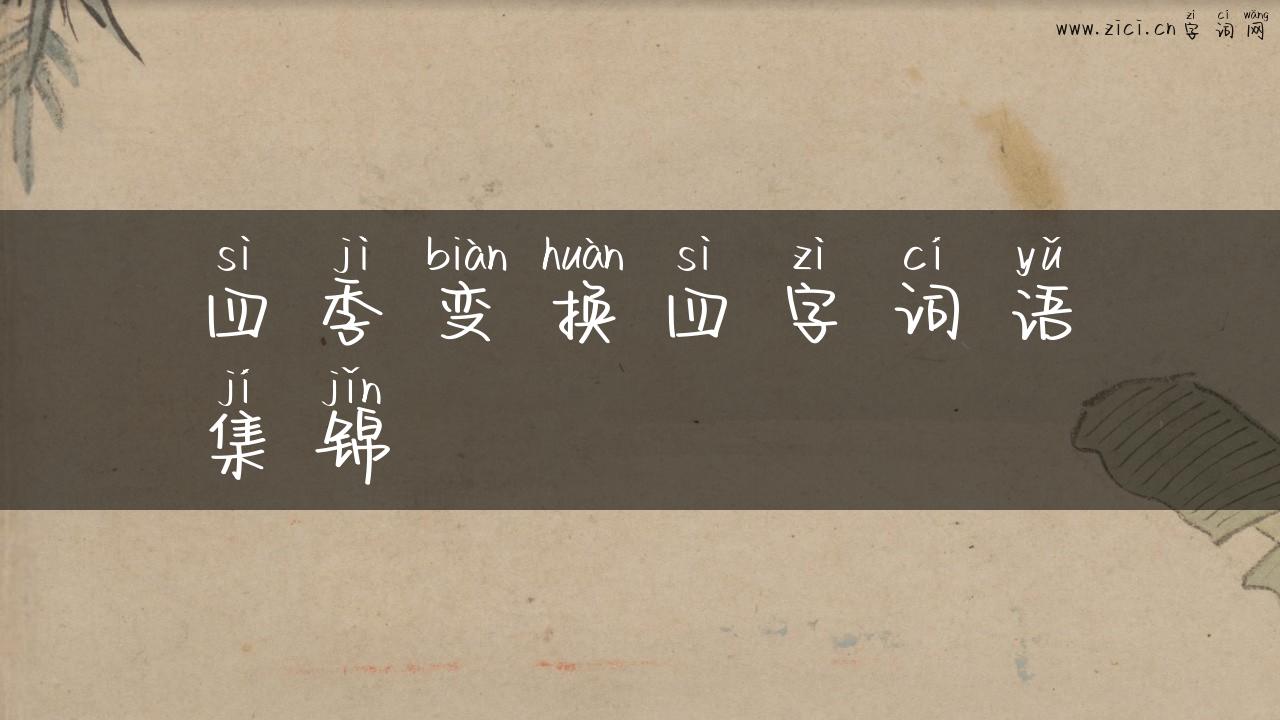 zì cí wǎng
www.zici.cn 字词网
sì jì biàn huàn sì zì cí yǔ
四季变换四字词语
jí jǐn
集锦